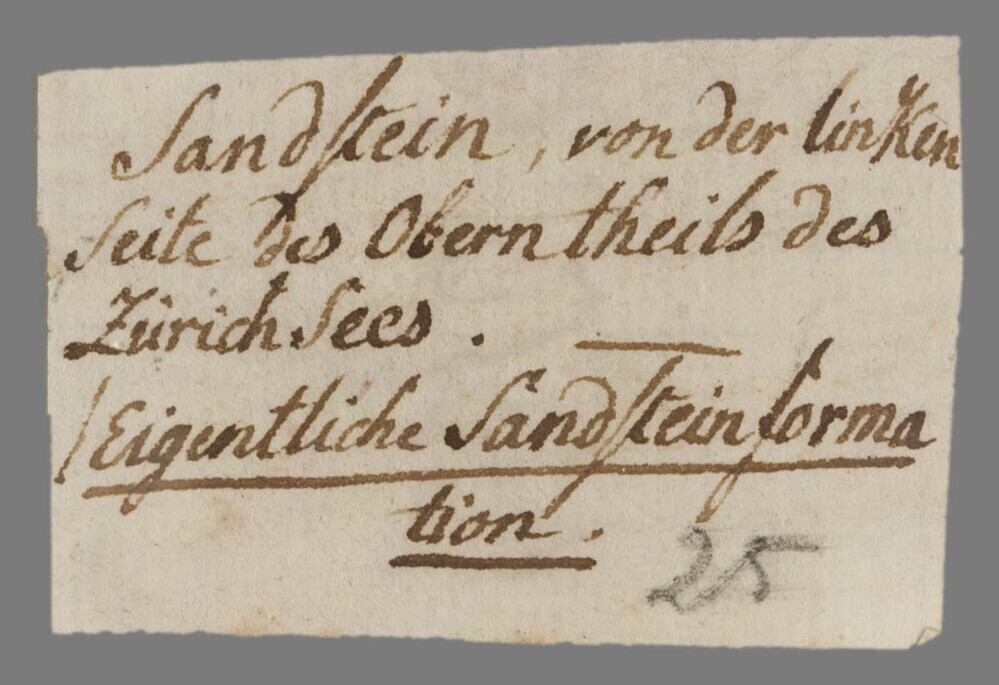 Sandstein, von der linken
Seite des Obern theils des
Zürich Sees. —
/Eigentliche Sandsteinforma
tion.
25